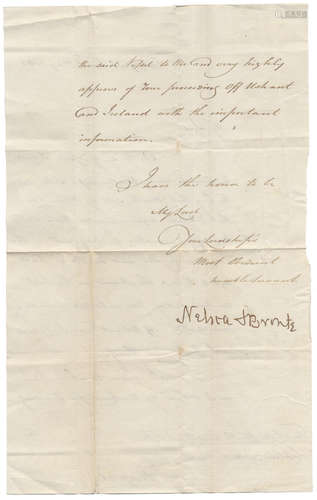 the said Vessel to me and very highly
approve of Your proceeding Off Ushant
and Ireland with the important
information.
I have the honor to be
My Lord
Your Lordship's
Most Obedient
humble Servant
Nelson & Bronte